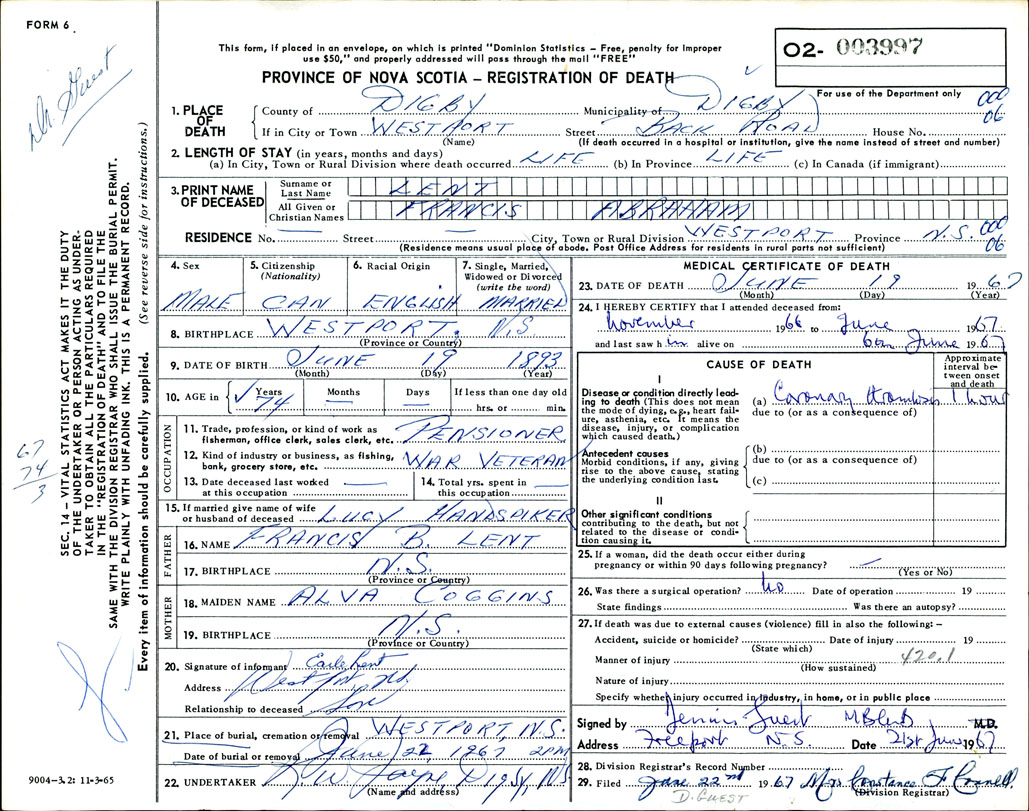 FORM 6.
This form, if placed in an envelope, on which is printed "Dominion Statistics – Free, penalty for improper
use $50," and properly addressed will pass through the mail "FREE"
PROVINCE OF NOVA SCOTIA – REGISTRATION OF DEATH
O2- 003997
For use of the Department only
000
06
Dr. Guest
1. PLACE OF DEATH County of DIGBY Municipality of DIGBY
If in City or Town WESTPORT Street BACK ROAD House No.
(Name) (If death occurred in a hospital or institution, give the name instead of street and number)
2. LENGTH OF STAY (in years, months and days)
(a) In City, Town or Rural Division where death occurred LIFE (b) In Province LIFE (c) In Canada (if immigrant)
3. PRINT NAME OF DECEASED Surname or Last Name LENT
All Given or Christian Names FRANCIS ABRAHAM
RESIDENCE No. — Street — City, Town or Rural Division WESTPORT Province N.S. 000
06
(Residence means usual place of abode. Post Office Address for residents in rural parts not sufficient)
4. Sex 5. Citizenship (Nationality) 6. Racial Origin 7. Single, Married, Widowed or Divorced (write the word)
MALE CAN ENGLISH MARRIED
8. BIRTHPLACE WESTPORT, N.S.
(Province or Country)
9. DATE OF BIRTH JUNE 19 1893
(Month) (Day) (Year)
10. AGE in Years Months Days If less than one day old
74 — — hrs. or min.
OCCUPATION
11. Trade, profession, or kind of work as
fisherman, office clerk, sales clerk, etc. PENSIONER
12. Kind of industry or business, as fishing,
bank, grocery store, etc. WAR VETERAN
13. Date deceased last worked at this occupation —
14. Total yrs. spent in this occupation —
15. If married give name of wife
or husband of deceased LUCY HANDSPIKER
FATHER
16. NAME FRANCIS B. LENT
17. BIRTHPLACE N.S.
(Province or Country)
MOTHER
18. MAIDEN NAME ALVA COGGINS
19. BIRTHPLACE N.S.
(Province or Country)
20. Signature of informant Lent
Address Westport N.S.
Relationship to deceased Son
21. Place of burial, cremation or removal WESTPORT, N.S.
Date of burial or removal June 22 1967 2PM
22. UNDERTAKER Digby, N.S.
(Name and address)
MEDICAL CERTIFICATE OF DEATH
23. DATE OF DEATH JUNE 19 1967
(Month) (Day) (Year)
24. I HEREBY CERTIFY that I attended deceased from:
November 1966 to June 1967
and last saw him alive on 6th June 1967
CAUSE OF DEATH
Approximate interval between onset and death
I
Disease or condition directly leading
to death (This does not mean
the mode of dying, e.g., heart failure,
asthenia, etc. It means the
disease, injury, or complication
which caused death.)
(a) Coronary thrombosis 1 hour
due to (or as a consequence of)
Antecedent causes
Morbid conditions, if any, giving
rise to the above cause, stating
the underlying condition last.
(b)
due to (or as a consequence of)
(c)
II
Other significant conditions
contributing to the death, but not
related to the disease or condition
causing it.
25. If a woman, did the death occur either during
pregnancy or within 90 days following pregnancy? —
(Yes or No)
26. Was there a surgical operation? No Date of operation 19
State findings Was there an autopsy?
27. If death was due to external causes (violence) fill in also the following: –
Accident, suicide or homicide? Date of injury 19
(State which)
Manner of injury 420.1
(How sustained)
Nature of injury
Specify whether injury occurred in industry, in home, or in public place
Signed by Dennis Guest M.D.
Address Freeport N.S. Date 21st June 1967
28. Division Registrar's Record Number
29. Filed June 22nd 1967 Mrs Constance F Connell
(Division Registrar)
D. GUEST
67
74
3
SEC. 14 – VITAL STATISTICS ACT MAKES IT THE DUTY
OF THE UNDERTAKER OR PERSON ACTING AS UNDERTAKER
TO OBTAIN ALL THE PARTICULARS REQUIRED
IN THE "REGISTRATION OF DEATH" AND TO FILE THE
SAME WITH THE DIVISION REGISTRAR WHO SHALL ISSUE THE BURIAL PERMIT.
WRITE PLAINLY WITH UNFADING INK. THIS IS A PERMANENT RECORD.
Every item of information should be carefully supplied. (See reverse side for instructions.)
9004–3.2: 11-3-65